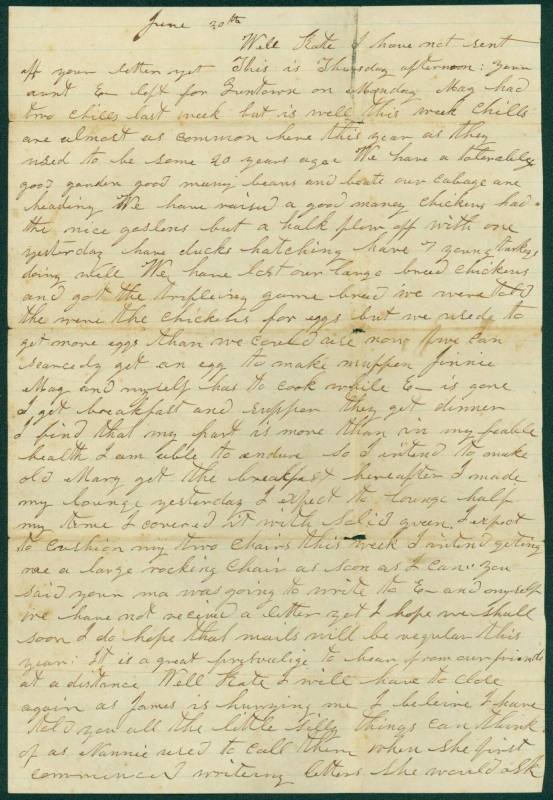 June 20th
Well Kate I have not sent
off your letter yet This is Thursday afternoon: your
aunt E left for Guntown on Monday Mag had
two chills last week but is well this week Chills
are almost as common here this year as they
used to be some 20 years ago We have a tolerable
good garden good many beans and beats our cabage are
heading We have raised a good maney chickens had
the nice goslens but a halk flew off with one
yesterday have ducks hatching have 7 young turkeys
doing well We have lost our large breed chickens
and got the game breed we were told
the were the chickens for eggs but we used to
get more eggs than we could use now we can
scarcedly get an egg to make muffen Jinnie
Mag and myself has to cook while E is gone
I get breakfast and supper they get dinner
I find that my part is more than in my feable
health I am able to endure so I intend to make
old Mary get the breakfast hereafter I made
my lounge yesterday I expect to lounge half
my time I covered it with solid green I expect
to cushion my two chairs this week I intend geting
me a large rocking chair as soon as I can: you
said your ma was going to write to E and myself
we have not received a letter yet I hope we shall
soon I do hope that mails will be regular this
year: It is a great to hear from our friends
at a distance Well Kate I will have to close
again as James is hurying me I beleive I have
told you all the little silly things can think
of as Nannie used to call them when she first
commenced writeing letters she would ask